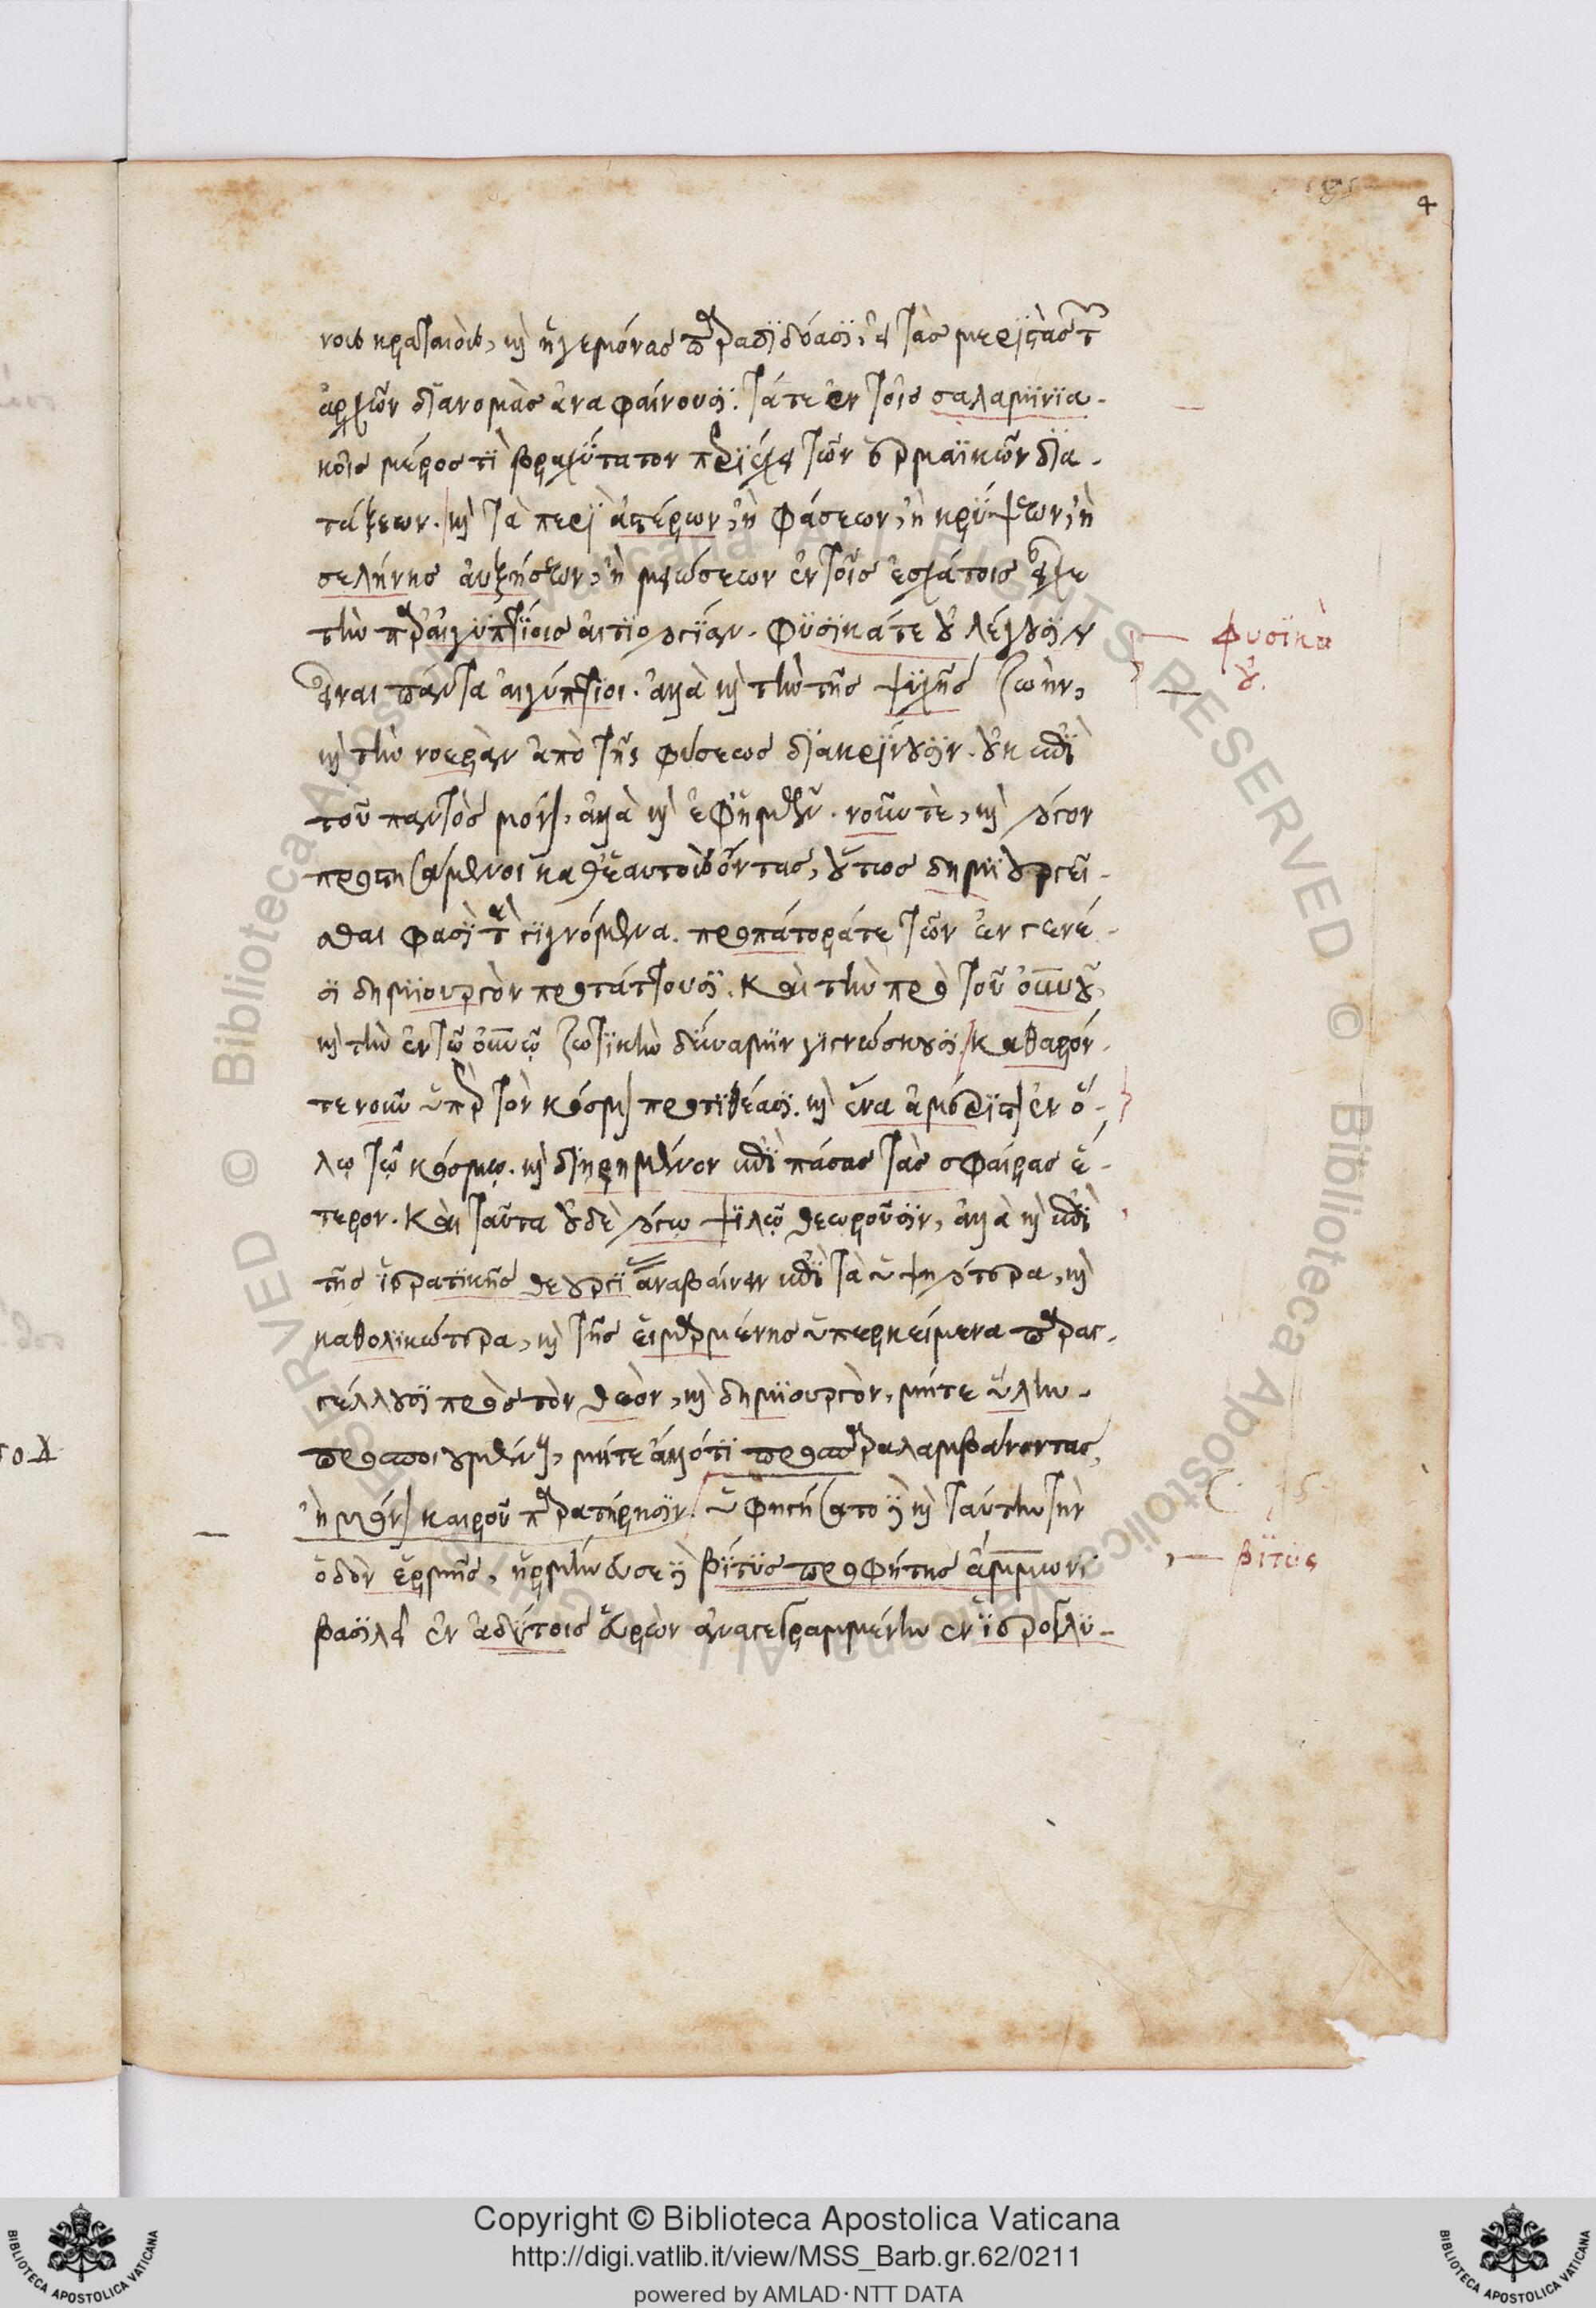 4
νους κραταιοὺς, καὶ ἡγεμόνας παραδιδόασι, εἰς τὰς μεριστὰς τῶν
ἀρχῶν διανομὰς ἀναφαίνουσι. τά τε ἐν τοῖς σαλαμινια-
κοῖς μέρος τὶ βραχύτατον περιέχει τῶν ἑρμαϊκῶν δια-
τάξεων. καὶ τὰ περὶ ἀστέρων, ἢ φάσεων, ἢ κρύψεων, ἢ
σελήνης αὐξήσεων, ἢ μειώσεων ἐν τοῖς ἐσχάτοις εἶχε
τὴν παρ' αἰγυπτίοις αἰτιολογίαν. φυσικά τε οὐ λέγουσιν
εἶναι πάντα αἰγύπτιοι. ἀλλὰ καὶ τὴν τῆς ψυχῆς ζωὴν,
καὶ τὴν νοερὰν ἀπὸ τῆς φύσεως διακρίνουσιν. οὐκ ἐπὶ
τοῦ παντὸς μόνον, ἀλλὰ καὶ ἐφ' ἡμῶν. νοῦν τὲ, καὶ λόγον
προστησάμενοι καθ' ἑαυτοὺς ὄντας, οὕτως δημιουργεῖ-
σθαι φασὶ τὰ γιγνόμενα. προπάτορά τε τῶν ἐν γενέ-
σι δημιουργὸν προτάττουσι. Καὶ τὴν πρὸ τοῦ οὐνοῦ,
καὶ τὴν ἐν τῷ οὐνῷ ζωτικὴν δύναμιν γιγνώσκουσι. Καθαρόν
τε νοῦν ὑπὲρ τὸν κόσμον προτιθέασι. καὶ ἕνα ἀμέριστον ἐν ὅ-
λῳ τῷ κόσμῳ. καὶ διῃρημένον ἐπὶ πάσας τὰς σφαίρας ἕ-
τερον. Καὶ ταῦτα οὐδὲ λόγῳ ψιλῷ θεωροῦσιν, ἀλλὰ καὶ διὰ
τῆς ἱερατικῆς θεουργίας ἀναβαίνειν ἐπὶ τὰ ὑψηλότερα, καὶ
καθολικώτερα, καὶ τῆς εἱμαρμένης ὑπερκείμενα παραγ-
γέλλουσι πρὸς τὸν θεὸν, καὶ δημιουργὸν, μήτε ὕλην
προσποιουμένους, μήτε ἄλλό τι προσπαραλαμβάνοντας,
ἢ μόνον καιροῦ παρατήρησιν. ὑφηγήσατο δὲ καὶ ταύτην τὴν
ὁδὸν ἑρμῆς, ἡρμήνευσε δὲ βίτυς προφήτης ἄμμωνι
βασιλεῖ ἐν ἀδύτοις εὑρὼν ἀναγεγραμμένην ἐν ἱερογλυ-
φυσικὰ
οὐ.
βίτυς
Copyright © Biblioteca Apostolica Vaticana
http://digi.vatlib.it/view/MSS_Barb.gr.62/0211
powered by AMLAD·NTT DATA